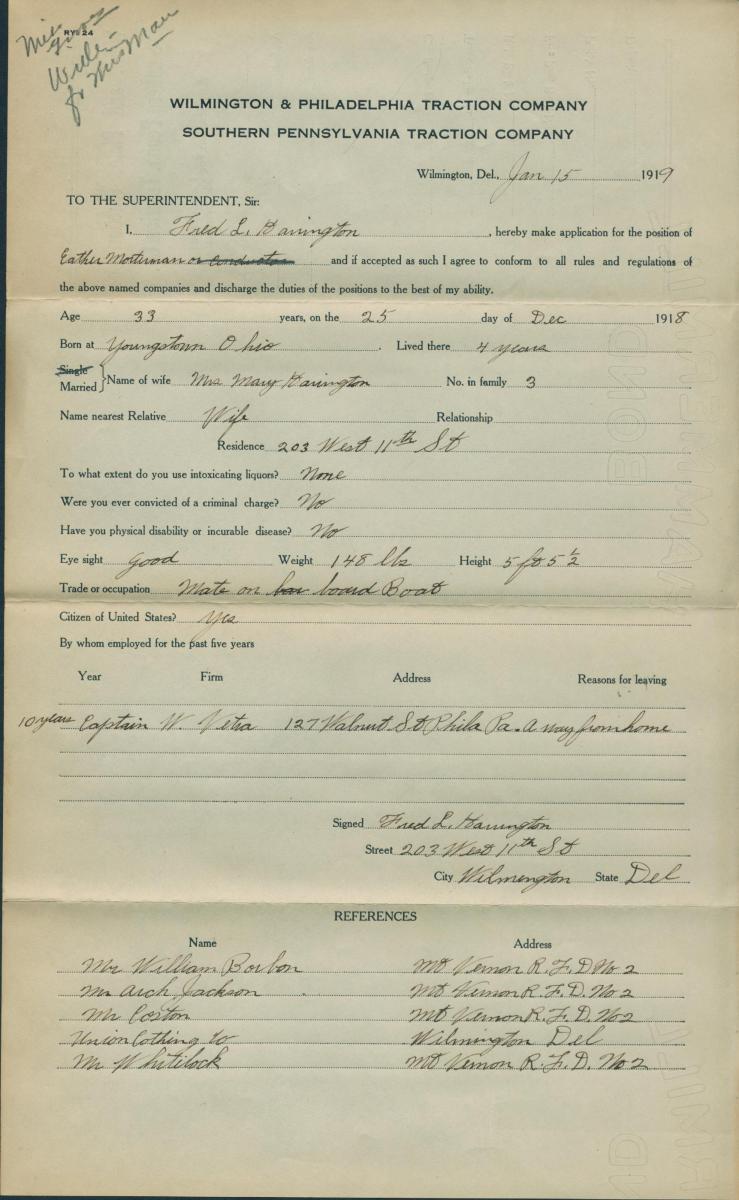 RY-24
WILMINGTON & PHILADELPHIA TRACTION COMPANY
SOUTHERN PENNSYLVANIA TRACTION COMPANY
Wilmington, Del., Jan 15 1919
TO THE SUPERINTENDENT, Sir:
I, Fred L. Harrington, hereby make application for the position of
Eather Moterman or Conductor and if accepted as such I agree to conform to all rules and regulations of
the above named companies and discharge the duties of the positions to the best of my ability.
Age 33 years, on the 25 day of Dec 1918
Born at Youngstown Ohio. Lived there 4 years
Single
Married } Name of wife Mrs Mary Harington No. in family 3
Name nearest Relative Wife Relationship
Residence 203 West 11th St
To what extent do you use intoxicating liquors? None
Were you ever convicted of a criminal charge? No
Have you physical disability or incurable disease? No
Eye sight good Weight 148 lbs Height 5 ft 5 ½
Trade or occupation Mate on bar board Boat
Citizen of United States? Yes
By whom employed for the past five years
Year Firm Address Reasons for leaving
10 years Captain W. Vetra 127 Walnut St Phila Pa. A way from home
Signed Fred L. Harrington
Street 203 West 11th St
City Wilmington State Del
REFERENCES
Name Address
Mr William Borbon Mt Vernon R. F. D No 2
Mr Arch Jackson Mt Vernon R. F. D. No 2
Mr Coston Mt Vernon R. F. D. No 2
Union Cothing Co Wilmington Del
Mr Whitelock Mt Vernon R. F. D. No 2